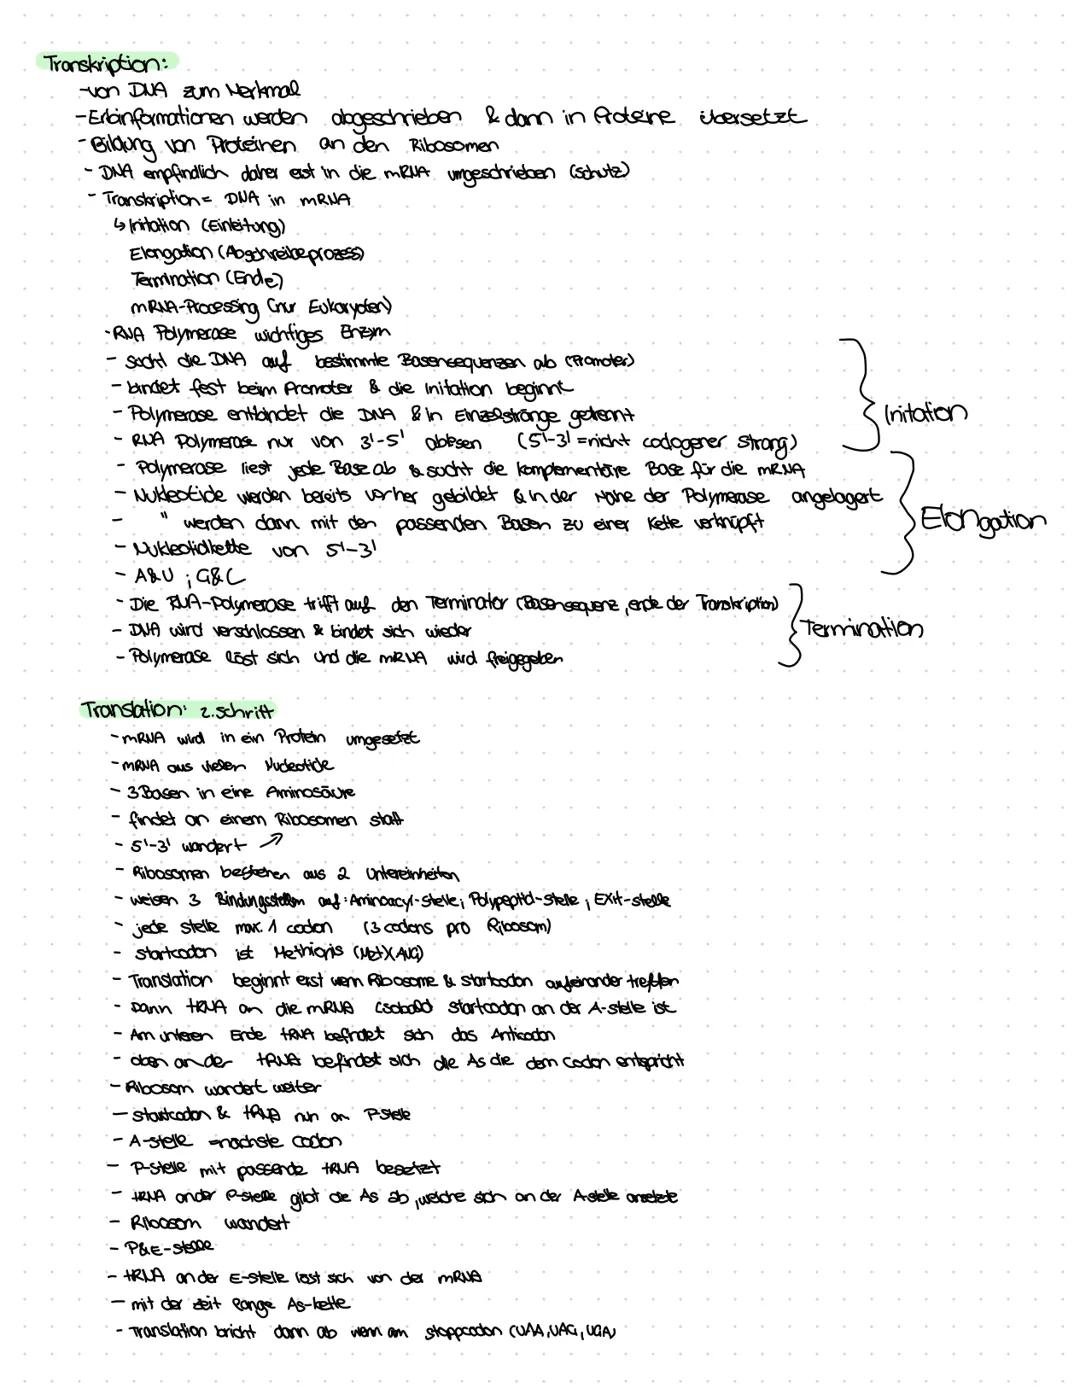 Transkription:
-von DNA zum Merkmal
-Erbinformationen werden abgeschrieben & dann in Proteine übersetzt
-Bildung von Proteinen an den Ribosomen
- DNA empfindlich daher erst in die mRNA umgeschrieben (Schutz)
- Transkription = DNA in mRNA
↳ Initation (Einleitung)
Elongation (Abschreibeprozess)
Termination (Ende)
mRNA-Processing (nur Eukaryoten)
-RNA Polymerase wichtiges Enzym
- sucht die DNA auf bestimmte Basensequenzen ab (Promoter)
- bindet fest beim Promoter & die Initation beginnt
- Polymerase entbindet die DNA & in Einzelstränge getrennt
- RNA Polymerase nur von 3'-5' ablesen (5'-3' = nicht codogener Strang)
Initation
- Polymerase liest jede Base ab & sucht die komplementäre Base für die mRNA
- Nukleotide werden bereits vorher gebildet & in der Nähe der Polymerase angelagert
- " werden dann mit den passenden Basen zu einer Kette verknüpft
- Nukleotidkette von 5'-3'
- A&U ; G&C
Elongation
- Die RNA-Polymerase trifft auf den Terminator (Basensequenz, ende der Transkription)
- DNA wird verschlossen & bindet sich wieder
- Polymerase löst sich und die mRNA wird freigegeben
Termination
Translation: 2. Schritt
- mRNA wird in ein Protein umgesetzt
- mRNA aus vielen Nucleotide
- 3 Basen in eine Aminosäure
- findet an einem Ribosomen statt
- 5'-3' wandert ↗
- Ribosomen bestehen aus 2 Untereinheiten
- weisen 3 Bindungsstellen auf: Aminoacyl-Stelle; Polypeptid-Stelle; Exit-stelle
- jede Stelle max. 1 codon (3 codons pro Ribosom)
- startcodon ist Methionis (Met)(AUG)
- Translation beginnt erst wenn Ribosome & startcodon aufeinander treffen
- Dann tRNA an die mRNA (sobald startcodon an der A-stelle ist
- Am unteren Ende tRNA befindet sich das Anticodon
- oben an der tRNA befindet sich die As die dem Codon entspricht
- Ribosom wandert weiter
- startcodon & tRNA nun an P-stelle
- A-stelle = nächste Codon
- P-stelle mit passende tRNA besetzt
- tRNA an der P-stelle gibt die As ab, welche sich an der A-stelle ansetzte
- Ribosom wandert
- P&E-stelle
- tRNA an der E-stelle löst sich von der mRNA
- mit der zeit lange As-kette
- Translation bricht dann ab wenn am stoppcodon (UAA, UAG, UGA)